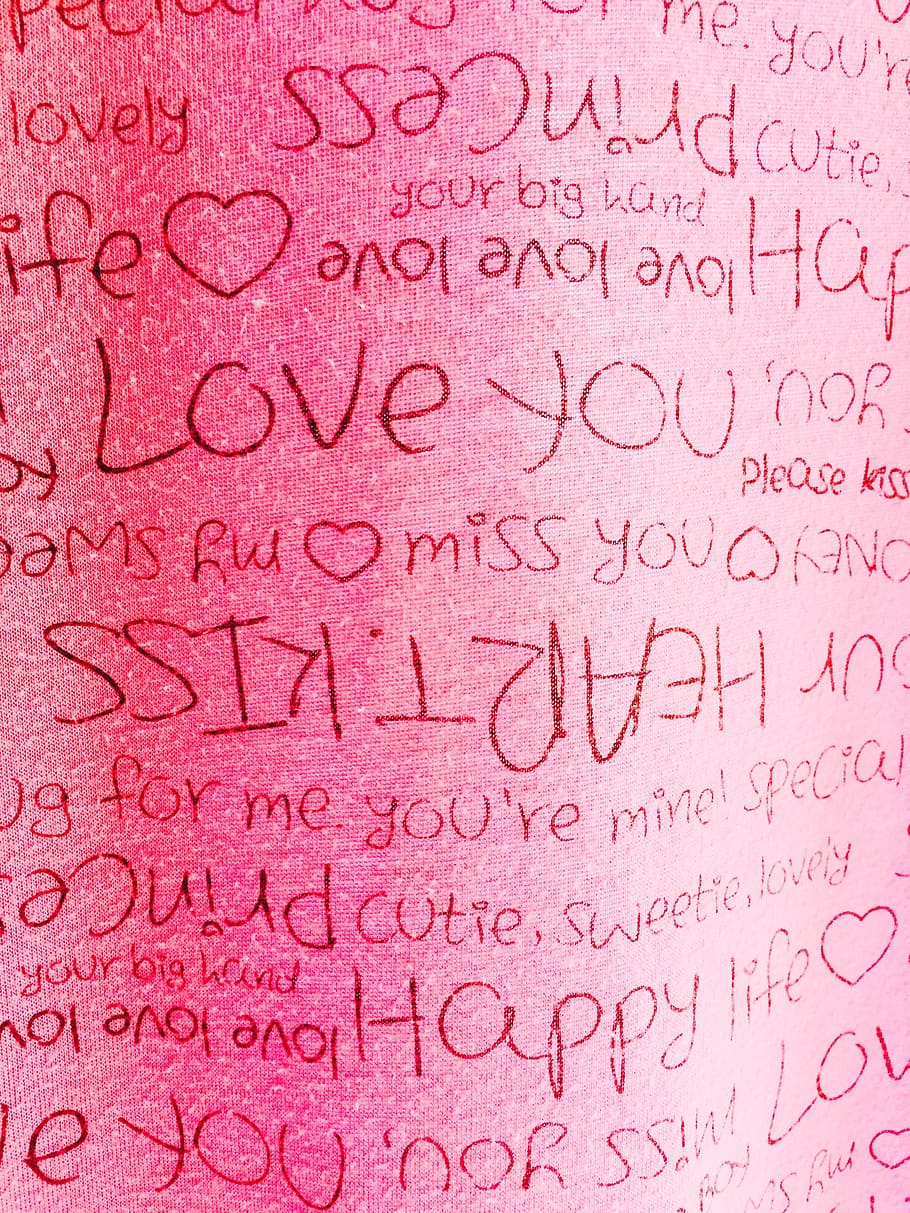 special hug for me. you're
lovely princess cutie,
your big hand
life love love love Hap
Love you you,
Please kiss
my swee miss you
HEART.KISS our
ug for me you're mine! special
princess cutie, sweetie, lovely
your big hand
love love love Happy life
ve you you, miss Lov
my